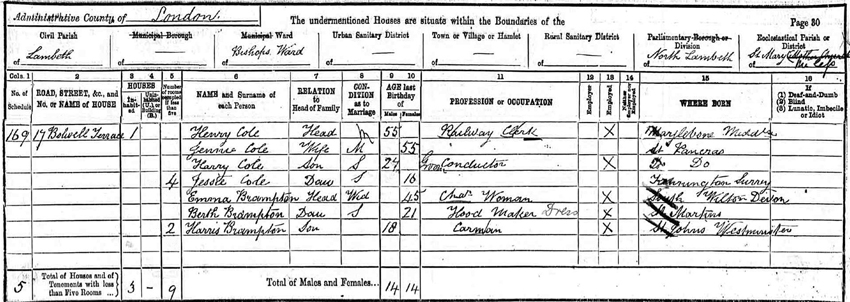 Administrative County of London. The undermentioned Houses are situate within the Boundaries of the Page 30
Civil Parish of Lambeth
Municipal Borough of
Municipal Ward of Bishops Ward
Urban Sanitary District of
Town or Village or Hamlet of
Rural Sanitary District of
Parliamentary Borough or Division of North Lambeth
Ecclesiastical Parish or District of St Mary
Cols. 1 2 3 4 5 6 7 8 9 10 11 12 13 14 15 16
No. of Schedule
ROAD, STREET, &c., and No. or NAME of HOUSE
HOUSES
Inhabited
Uninhabited (U.), or Building (B.)
Number of rooms occupied if less than five
NAME and Surname of each Person
RELATION to Head of Family
CONDITION as to Marriage
AGE last Birthday of
Males Females
PROFESSION or OCCUPATION
Employer
Employed
Neither Employer nor Employed
WHERE BORN
If
(1) Deaf-and-Dumb
(2) Blind
(3) Lunatic, Imbecile or Idiot
169 17 Terrace 1 Henry Cole Head M 55 Railway Clerk X Marylebone Middx
Cole Wife M 55 St Pancras
Harry Cole Son S 24 Conductor X Do
4 Jessie Cole Daur S 16 Kennington Surrey
Emma Brampton Head Wid 45 Char Woman X South Devon
Berth Brampton Daur S 21 Hood Maker Dress X St Martins
2 Harris Brampton Son 18 Carman X St Johns Westminster
5 Total of Houses and of Tenements with less than Five Rooms ... 3 - 9 Total of Males and Females... 14 14